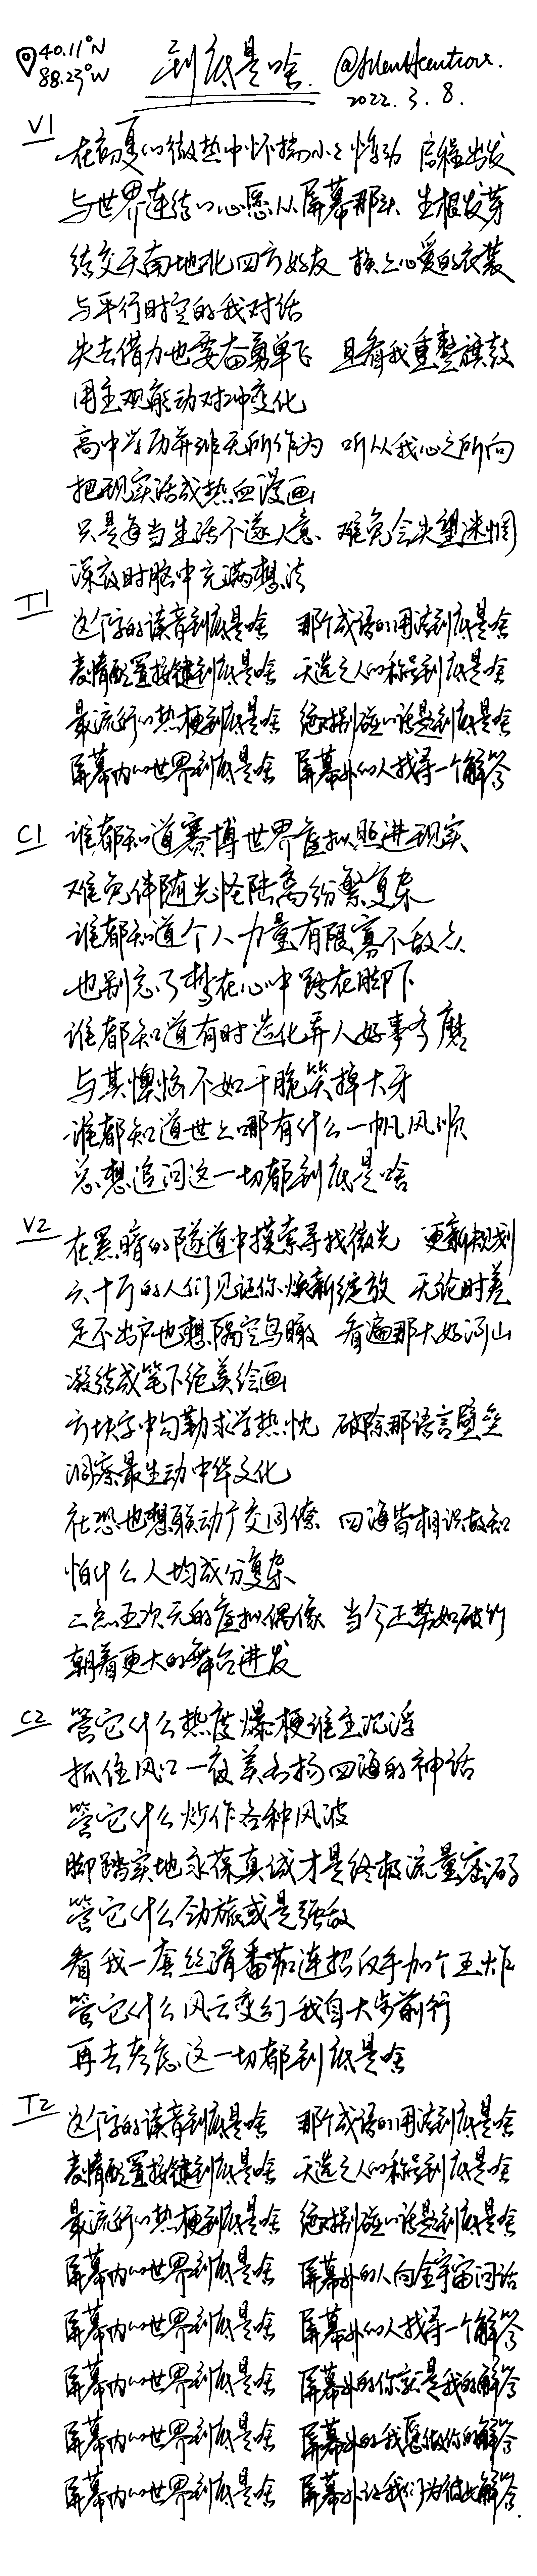 40.11°N
88.23°W
到底是啥
2022.3.8.
V1
在初夏的微热中怀揣小小悸动 启程出发
与世界连结的心愿从屏幕那头 生根发芽
结交天南地北四方好友 换上心爱的衣装
与平行时空的我对话
失去借力也要奋勇单飞 且看我重整旗鼓
用主观能动对冲变化
高中学历并非无所作为 听从我心之所向
把现实活成热血漫画
只是每当生活不遂人意 难免会失望迷惘
深夜时脑中充满想法
T1
这个字的读音到底是啥 那个成语的用法到底是啥
表情配置按键到底是啥 天选之人的称号到底是啥
最流行的热梗到底是啥 绝对别碰的话题到底是啥
屏幕内的世界到底是啥 屏幕外的人找寻一个解答
C1
谁都知道赛博世界虚拟照进现实
难免伴随光怪陆离纷繁复杂
谁都知道个人力量有限寡不敌众
也别忘了梦在心中路在脚下
谁都知道有时造化弄人好事多磨
与其懊恼不如干脆笑掉大牙
谁都知道世上哪有什么一帆风顺
总想追问这一切都到底是啥
V2
在黑暗的隧道中摸索寻找微光 更新规划
六十万的人们见证你焕新绽放 无论时差
足不出户也想隔空鸟瞰 看遍那大好河山
凝结成笔下绝美绘画
方块字中勾勒求学热忱 破除那语言壁垒
洞察最生动中华文化
社恐也想联动广交同僚 四海皆相识故知
怕什么人均成分复杂
二点五次元的虚拟偶像 当今正势如破竹
朝着更大的舞台进发
C2
管它什么热度爆梗谁主沉浮
抓住风口一夜美名扬四海的神话
管它什么炒作各种风波
脚踏实地永葆真诚才是终极流量密码
管它什么劲旅或是强敌
看我一套丝滑番茄连招反手加个王炸
管它什么风云变幻我自大步前行
再去考虑这一切都到底是啥
T2
这个字的读音到底是啥 那个成语的用法到底是啥
表情配置按键到底是啥 天选之人的称号到底是啥
最流行的热梗到底是啥 绝对别碰的话题到底是啥
屏幕内的世界到底是啥 屏幕外的人向全宇宙问话
屏幕内的世界到底是啥 屏幕外的人找寻一个解答
屏幕内的世界到底是啥 屏幕外的你就是我的解答
屏幕内的世界到底是啥 屏幕外的我愿做你的解答
屏幕内的世界到底是啥 屏幕外让我们为彼此解答.